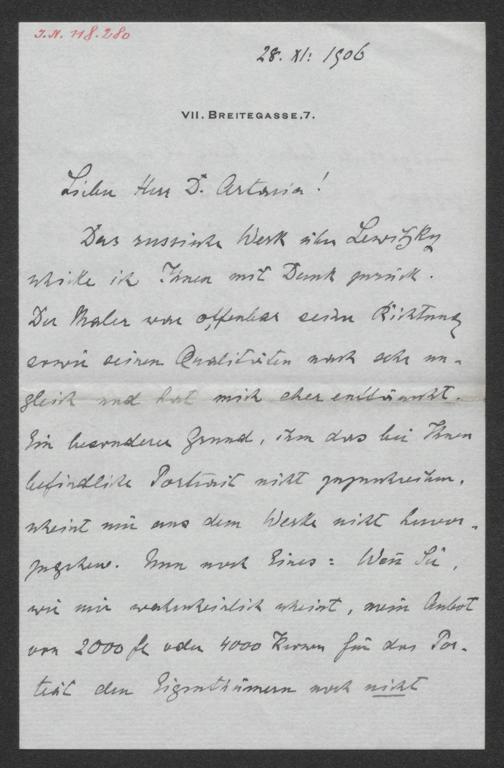 I.N. 118.280
28. XI. 1906
VII. BREITEGASSE.7.
Lieber Herr D. Artaria!
Das russische Werk über Lewitzky
schicke ich Ihnen mit Dank zurück.
Der Maler war offenbar seiner Richtung
sowie seinen Qualitäten nach sehr un-
gleich und hat mich eher enttäuscht.
Ein besonderer Grund, ihm das bei Ihnen
befindliche Portrait nicht zuzuschreiben,
scheint mir aus dem Werke nicht hervor-
zugehen. Nun noch Eines: Wenn Sie,
wie mir wahrscheinlich scheint, mein Anbot
von 2000 fl oder 4000 Kronen für das Por-
trät den Eigenthümern noch nicht